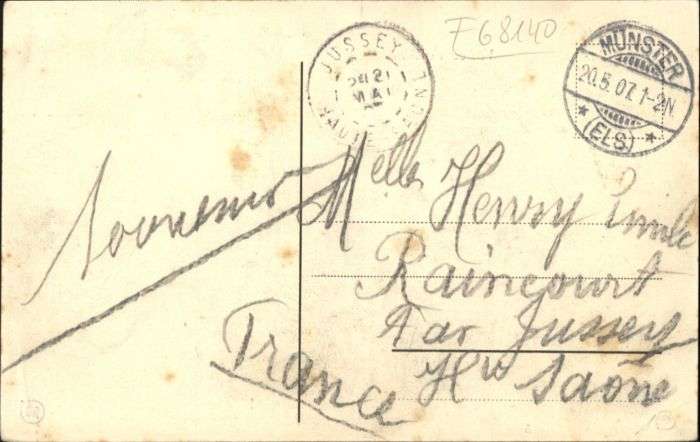 F68140
JUSSEY
21
MAI
HAUTE SAONE
MÜNSTER
20.5.07. 1-2N.
* (ELS) *
Souvenir
Melle Henry Emilie
Raincourt
Par Jussey
Hte Saône
France